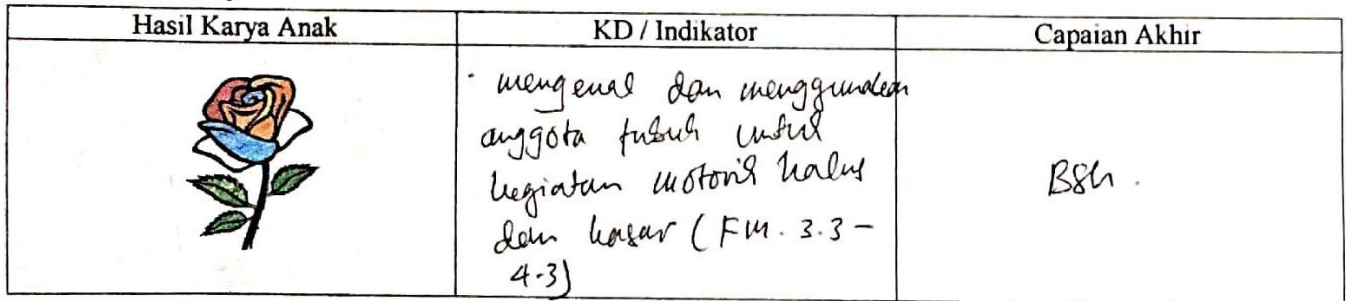 Hasil Karya Anak KD / Indikator Capaian Akhir
- mengenal dan menggunakan
anggota tubuh untuk
kegiatan motorik halus
dan kasar (Fm. 3.3 -
4.3)
BSh.